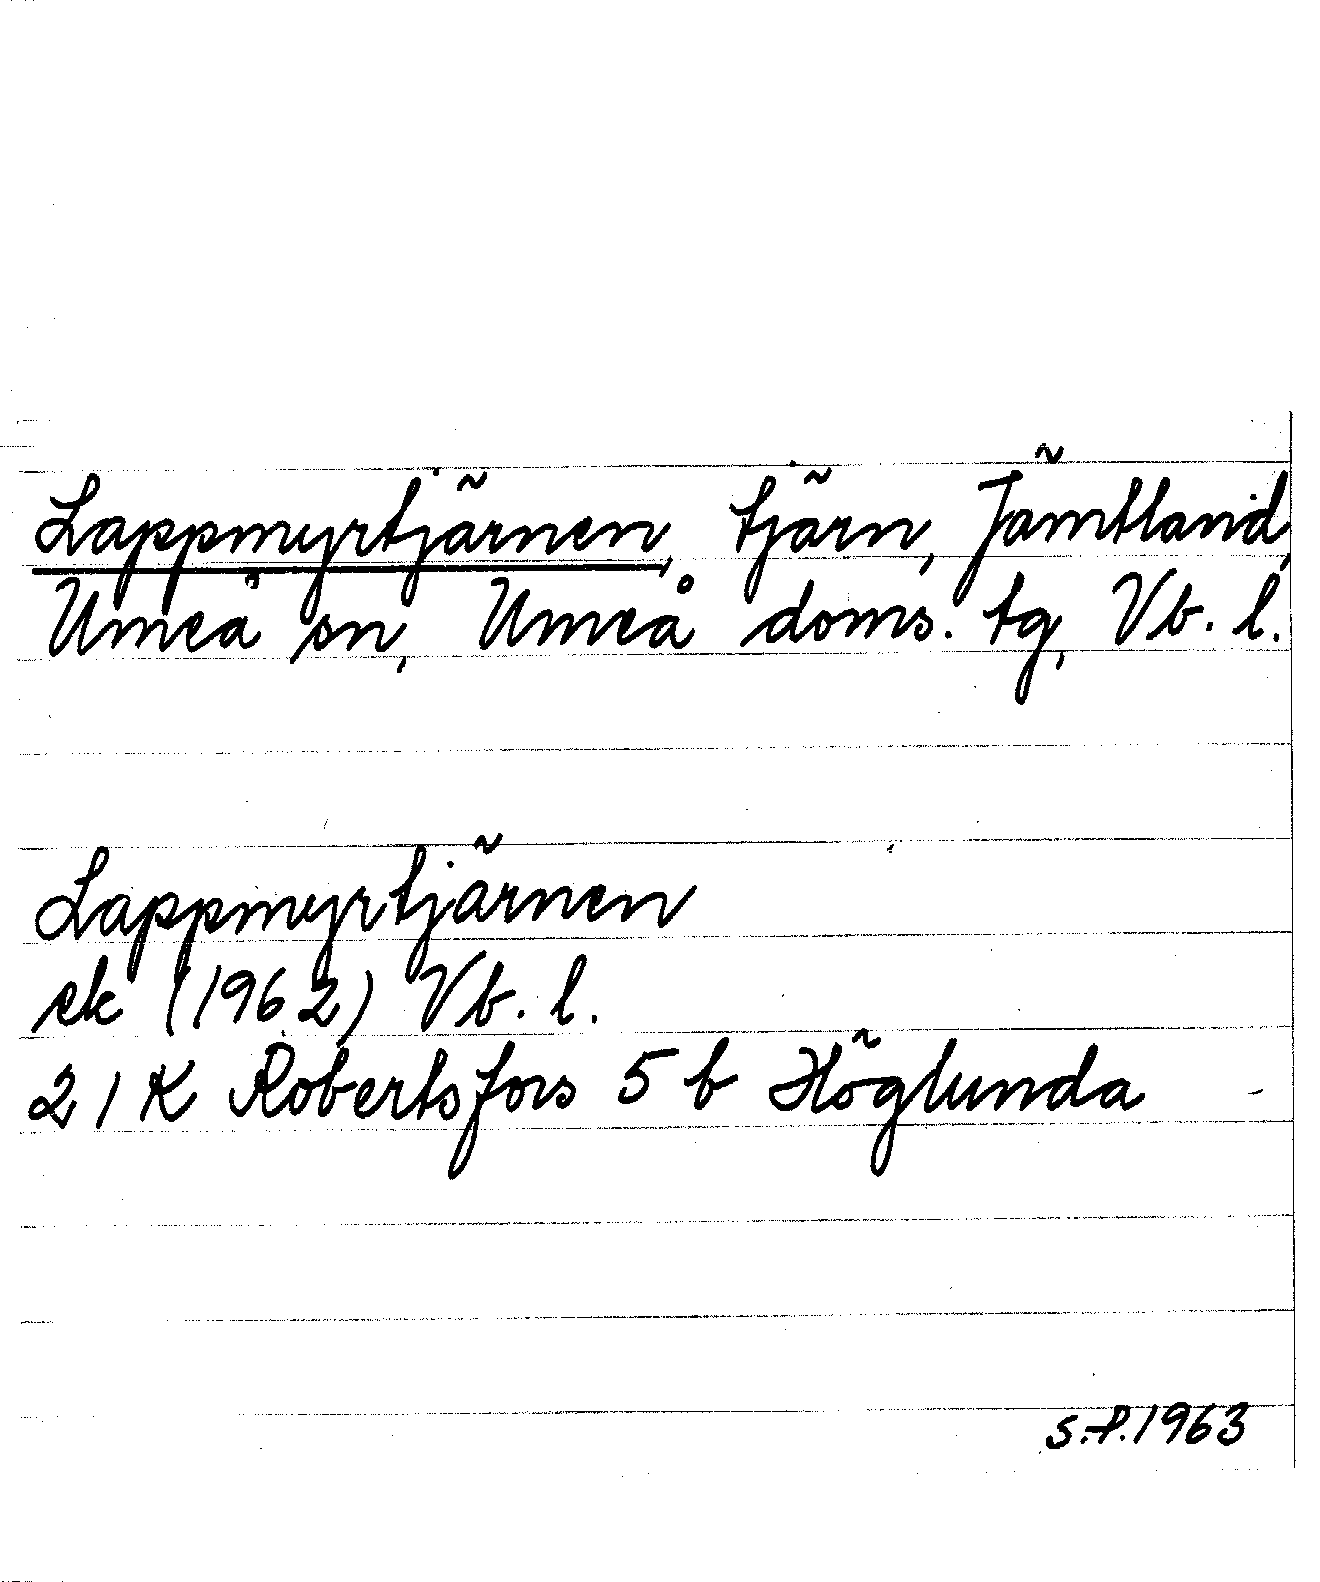 Lappmyrtjärnen, tjärn, Jämtland,
Umeå sn, Umeå doms. tg, Vb. l.
Lappmyrtjärnen
ek (1962) Vb. l.
21 K Robertsfors 5 b Höglunda
S.P. 1963